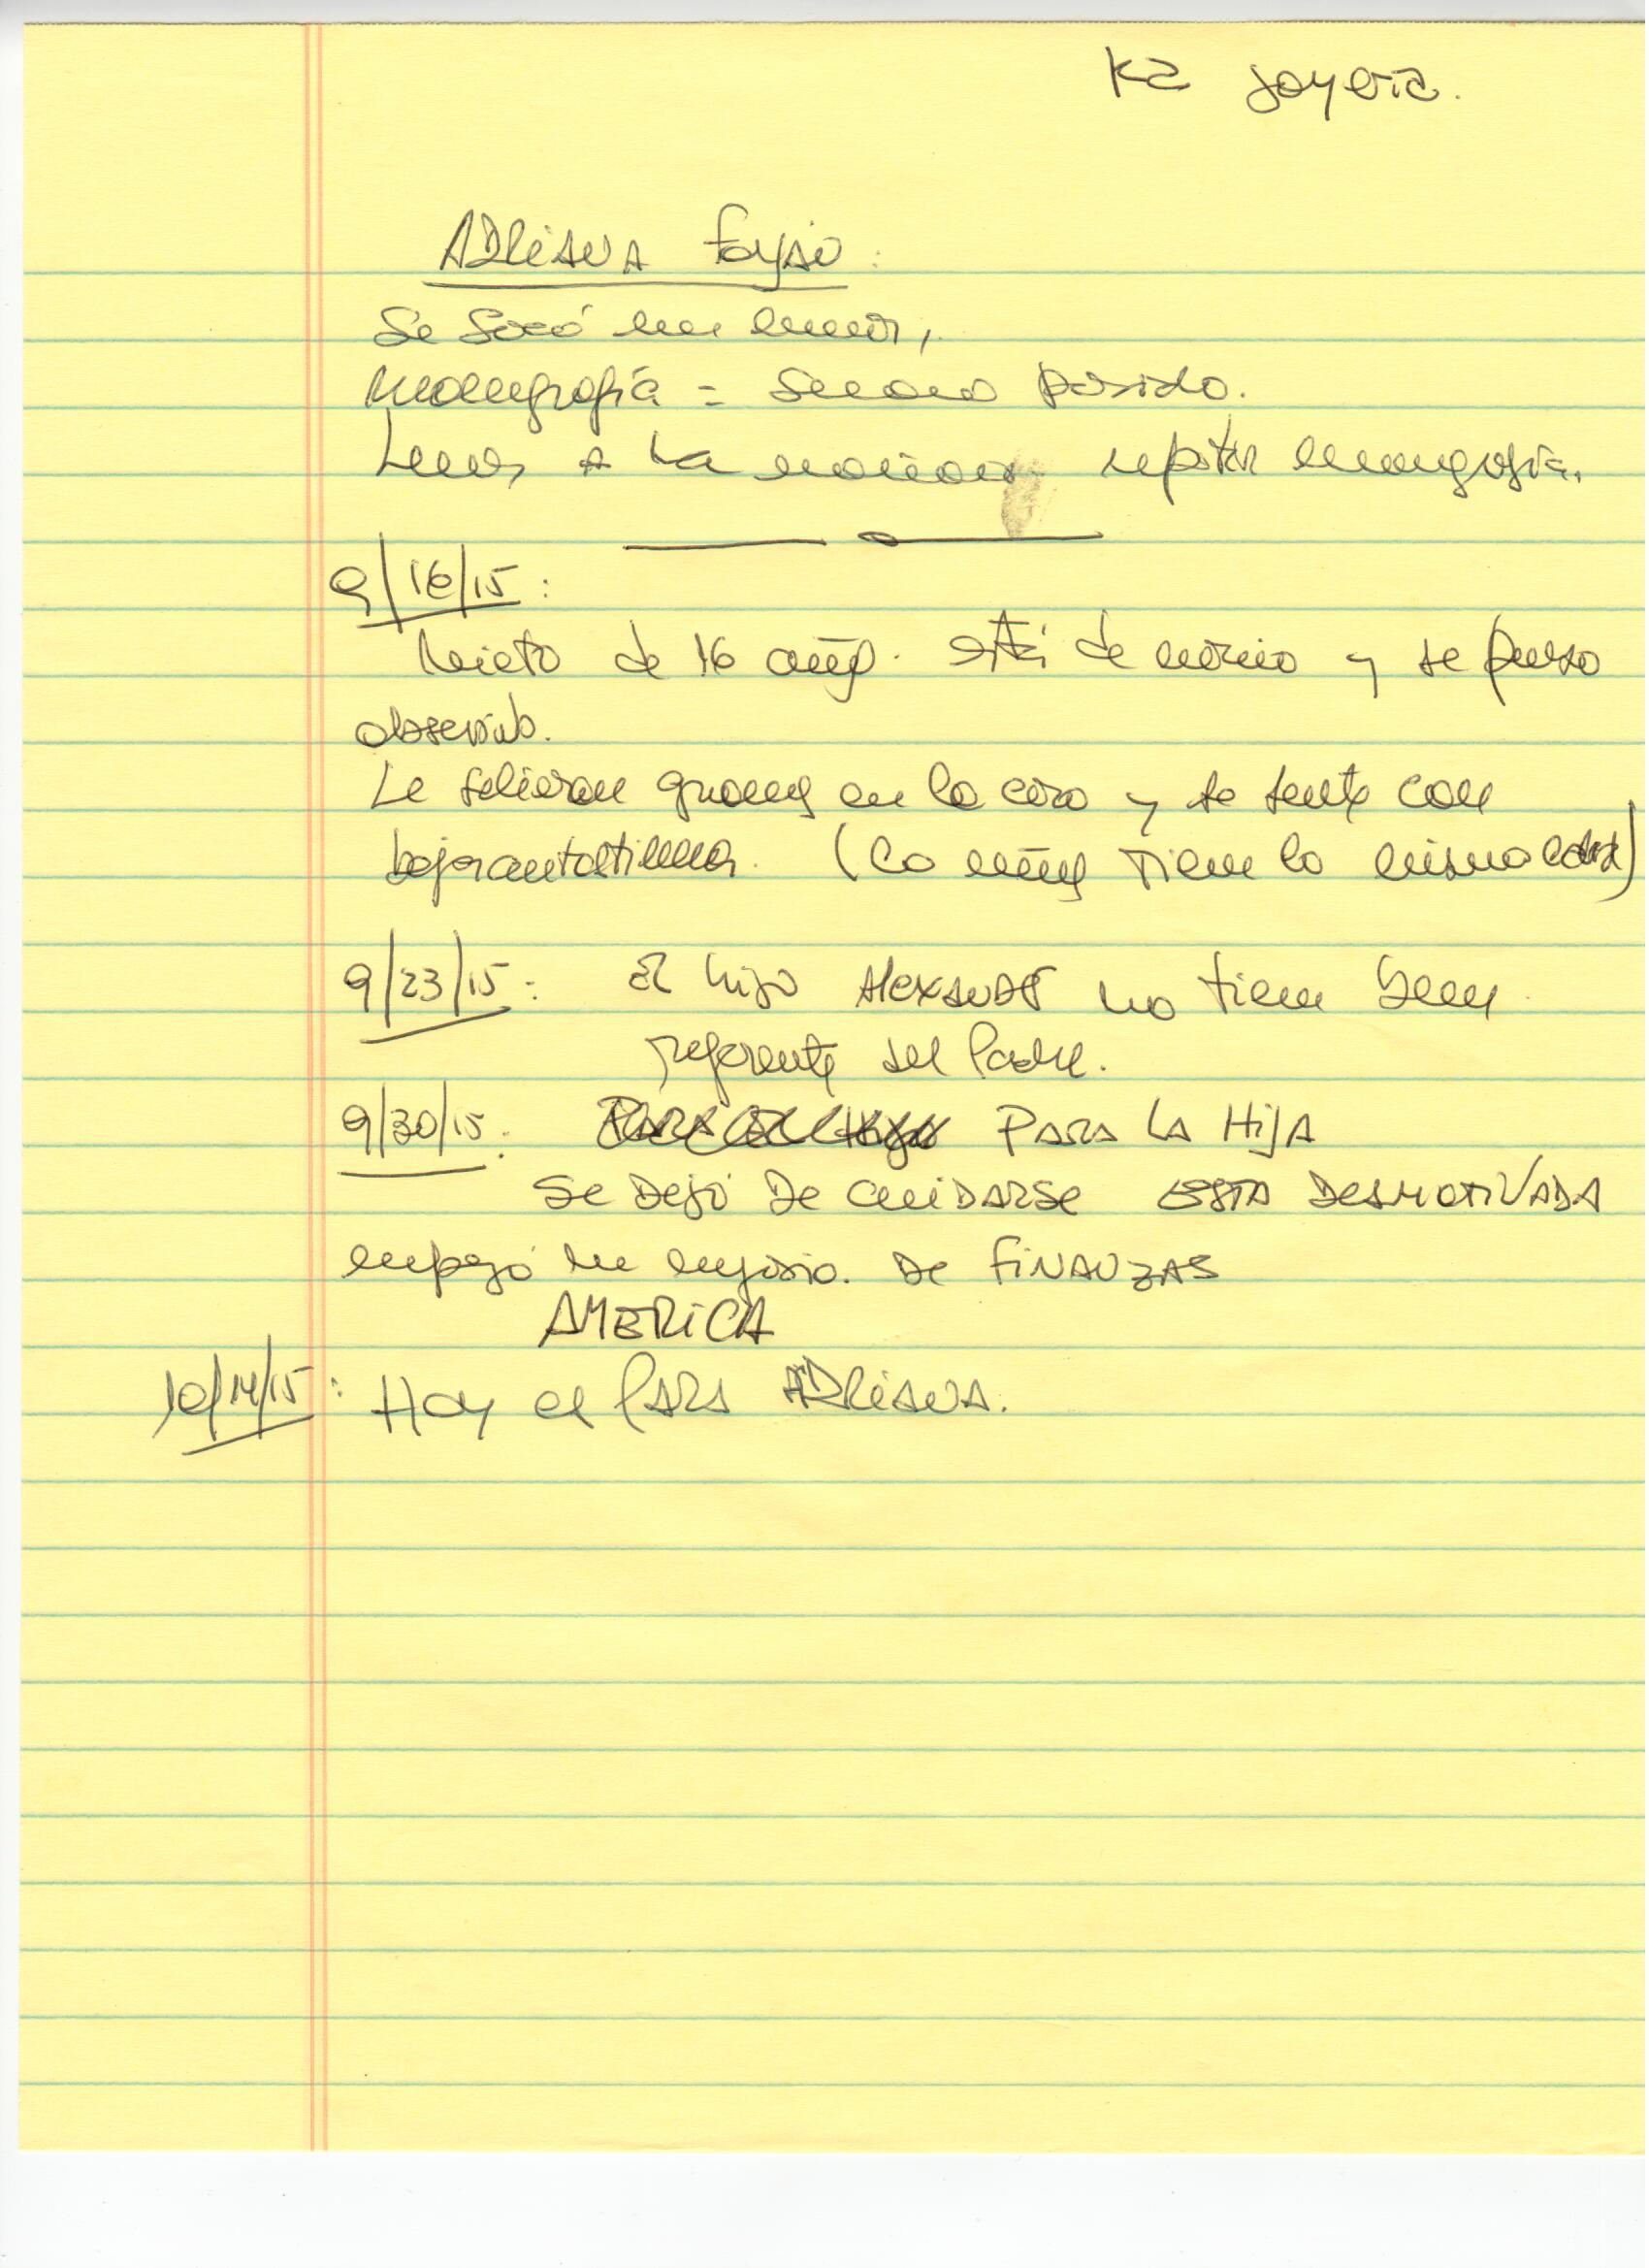 K2 joyeria.
ADRIANA
Se sacó un tumor,
mamografía = semana pasada.
Lunes a la mañana repetir mamografía.
9/16/15:
Nieto de 16 años. está de novio y se puso
obsesivo.
Le salieron granos en la cara y se siente con
baja autoestima. (La niña tiene la misma edad)
9/23/15: El hijo Alexander no tiene buen
referente del Padre.
9/30/15: PARA LA HIJA
SE DEJÓ DE CUIDARSE ESTA DESMOTIVADA
empezó un negocio. DE FINANZAS
AMERICA
10/14/15: Hoy es PARA ADRIANA.